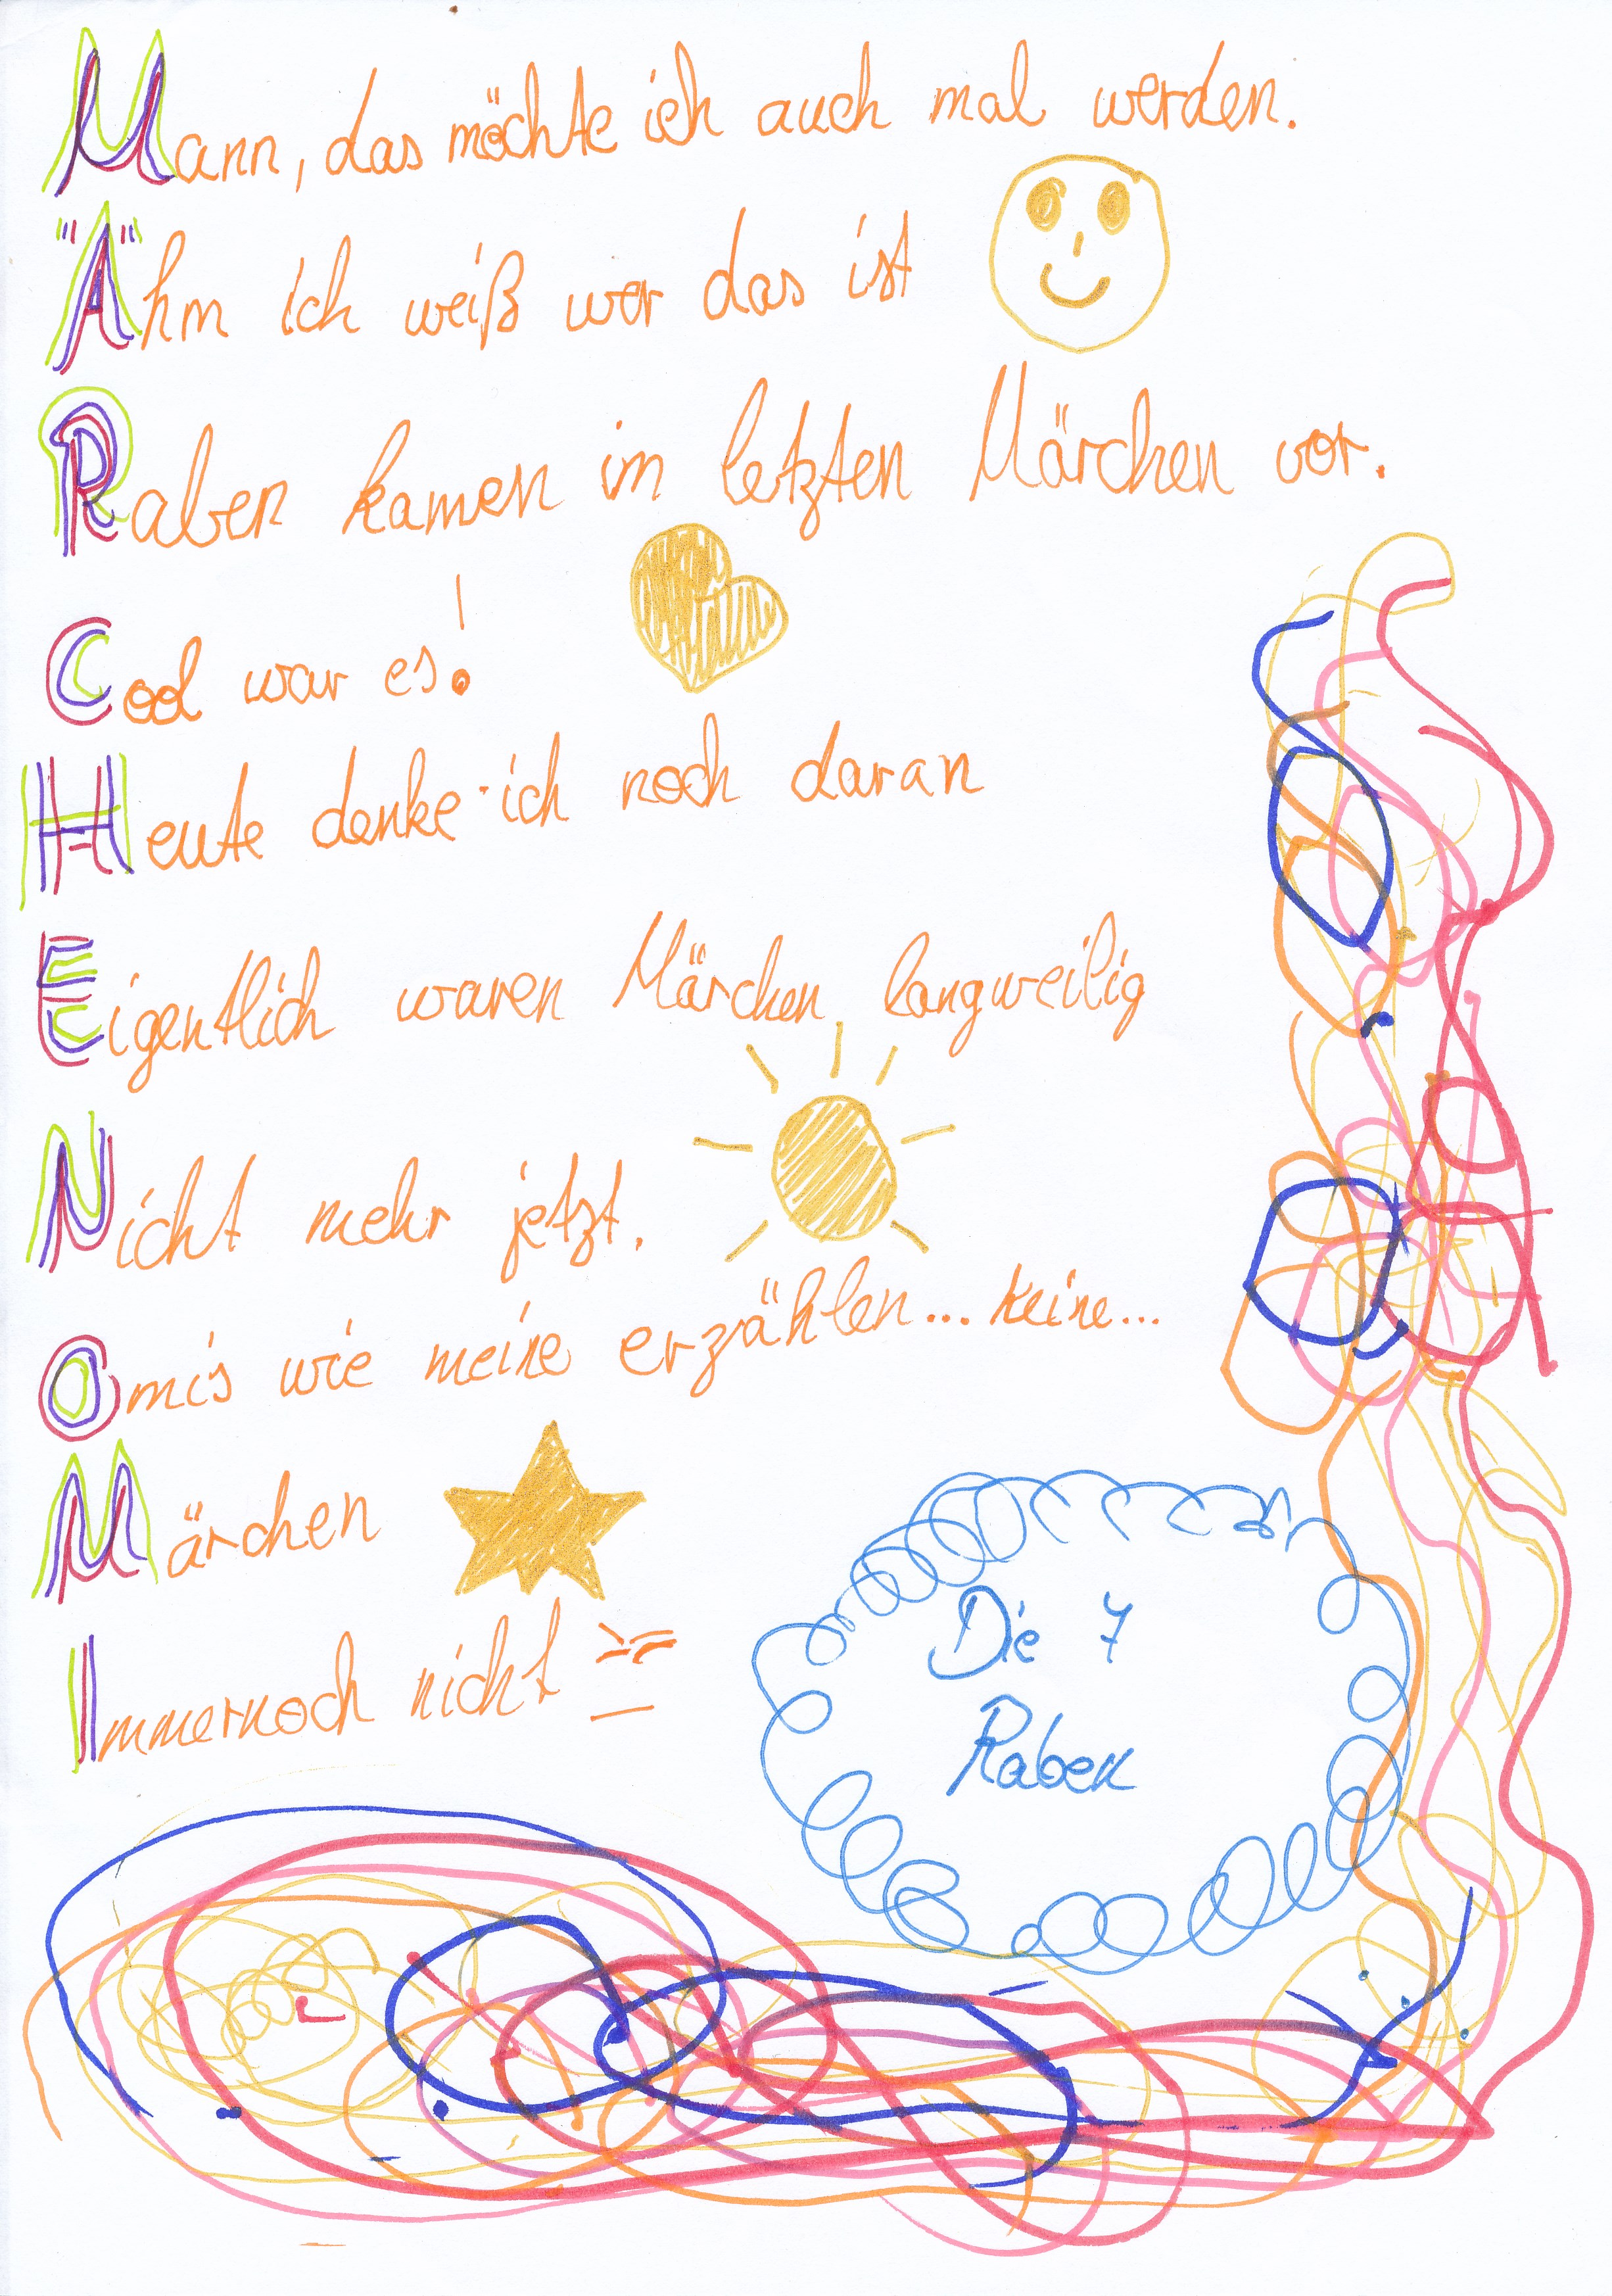 Mann, das möchte ich auch mal werden.
Ähm ich weiß wer das ist
Raben kamen im letzten Märchen vor.
Cool war es!
Heute denke ich noch daran
Eigentlich waren Märchen langweilig
Nicht mehr jetzt.
Omis wie meine erzählen... keine...
Märchen
Immernoch nicht
Die 7
Raben